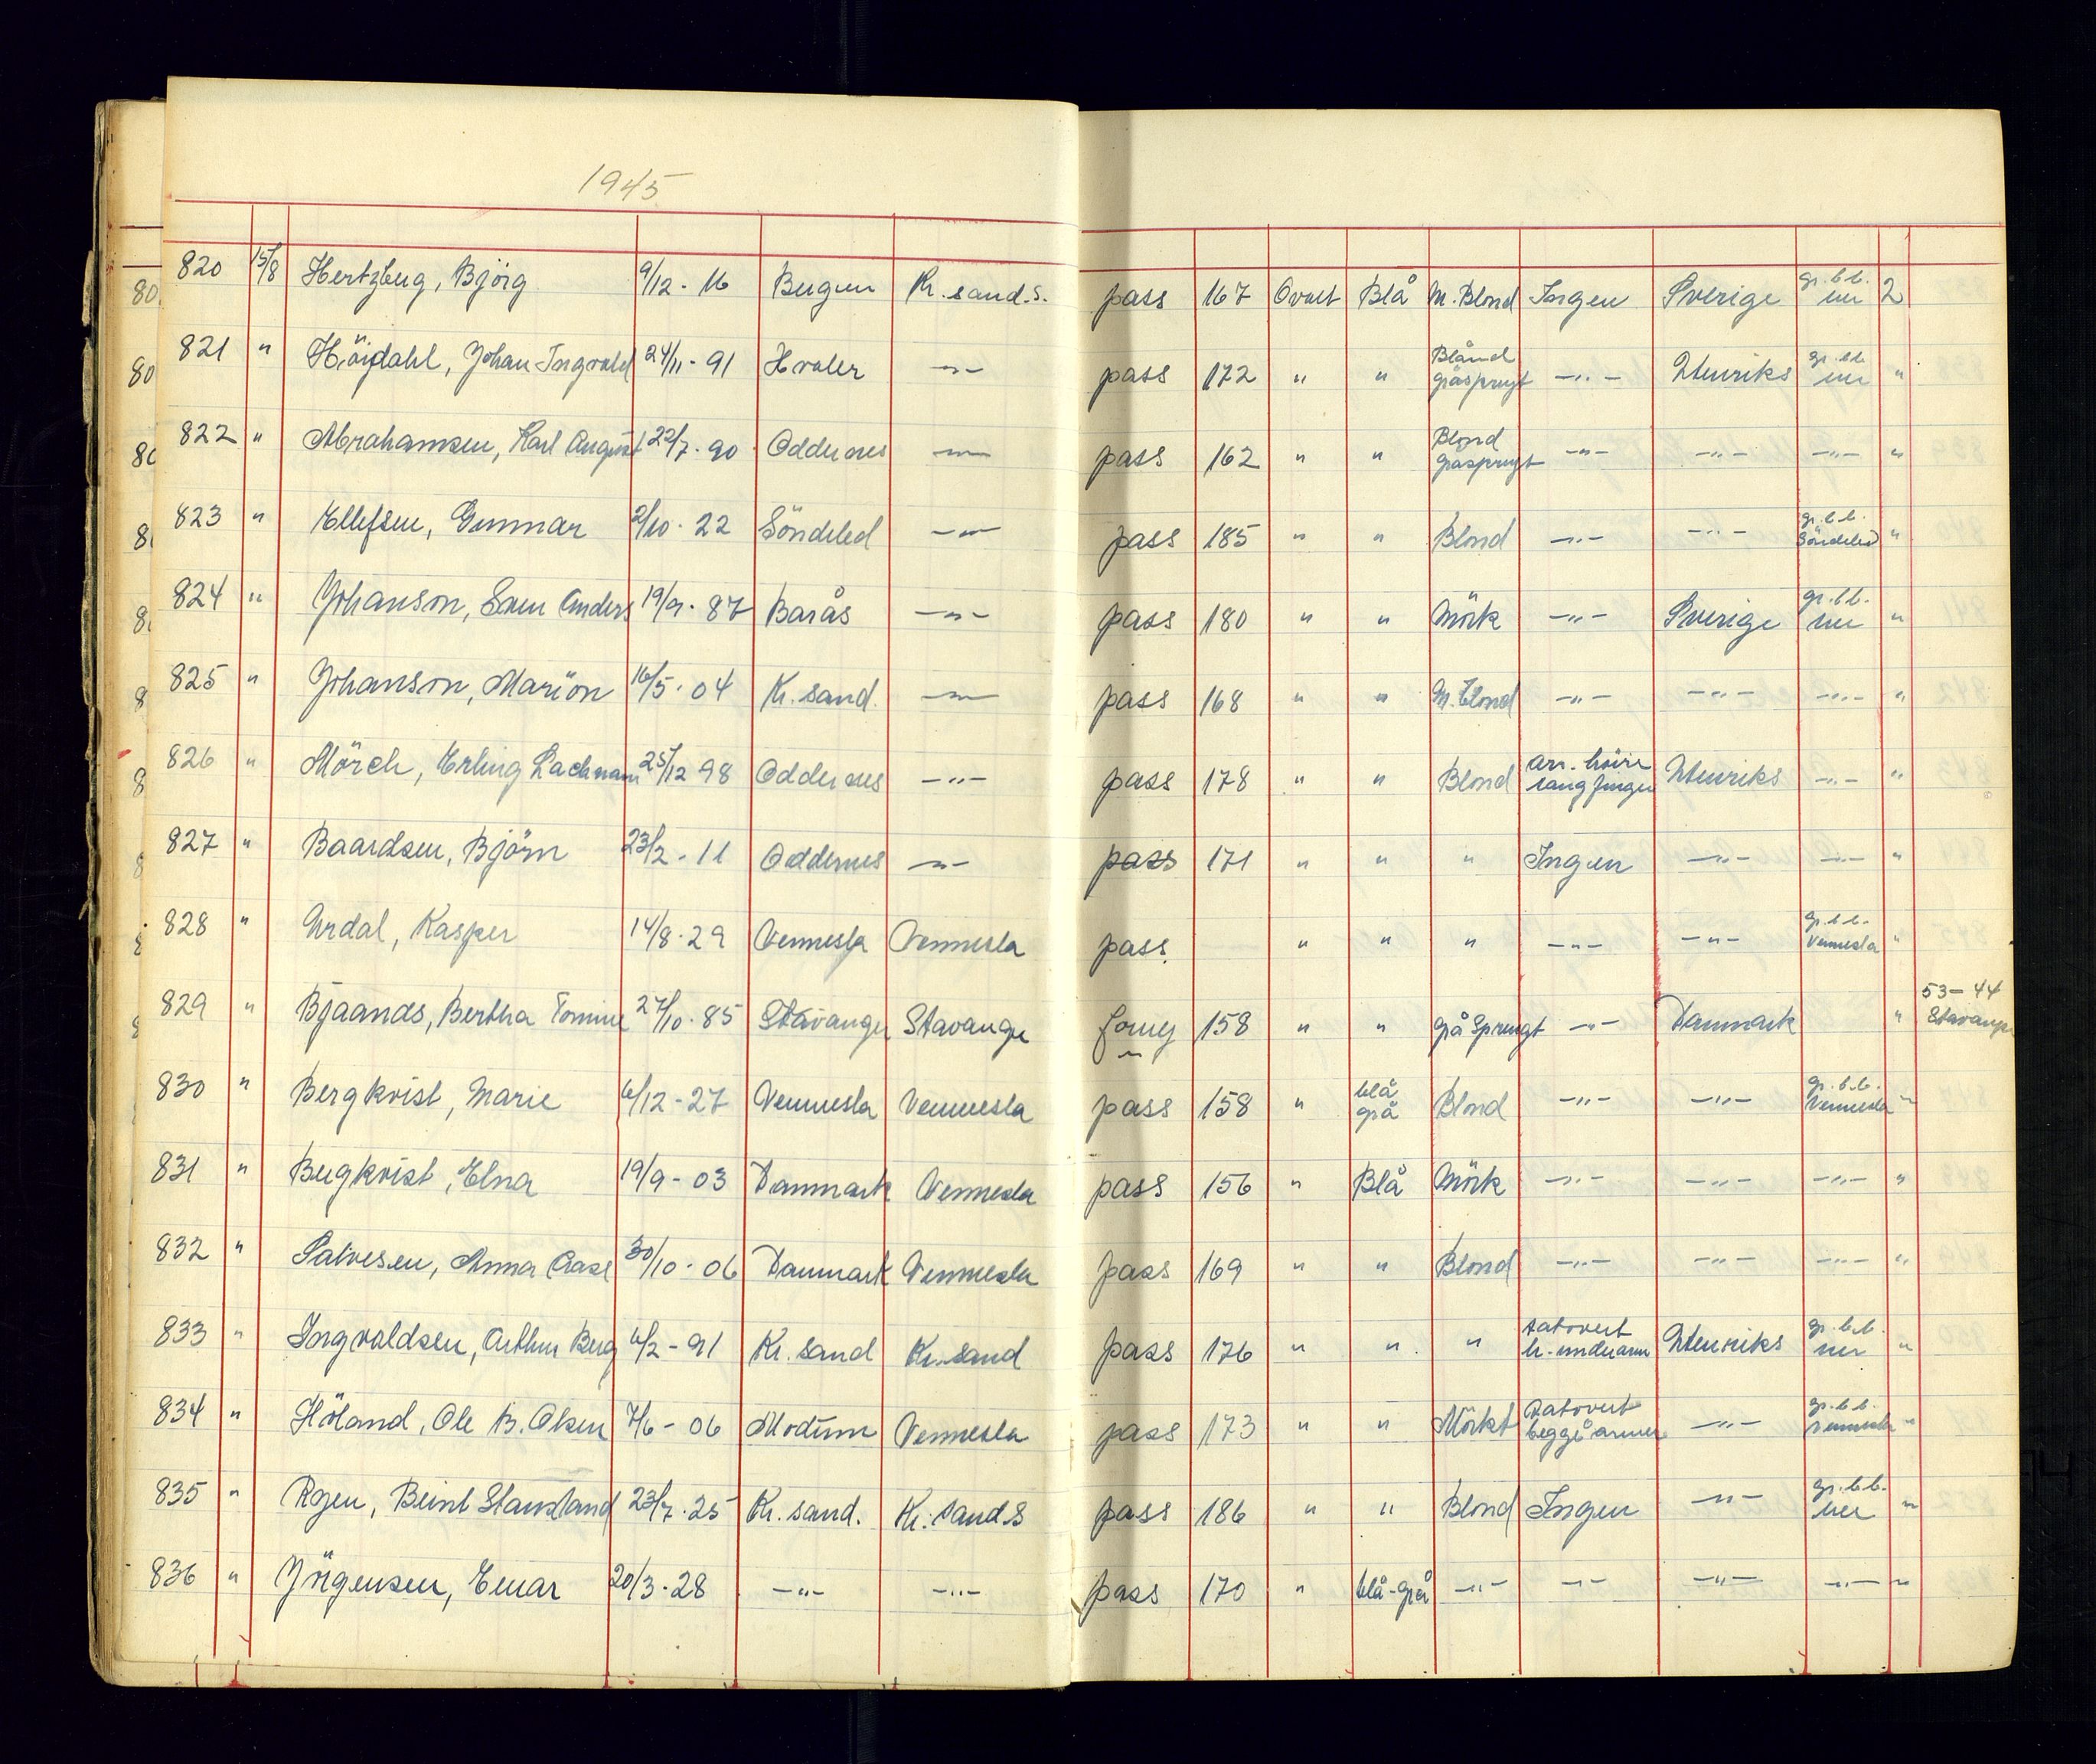 1945
820 15/8 Hertzberg, Björg 9/12 - 16 Bergen Kr. sand. S. pass 167 Ovalt Blå M. Blond Ingen Sverige gr. b.b. 2
821 " Höijdahl, Johan Ingvald 24/11 - 91 Hvaler -"- pass 172 " " Bland gråsprengt -"- Utenriks gr. bb. "
822 " Abrahamsen, Karl August 22/7 - 90 Oddernes -"- pass 162 " " Blond gråsprengt -"- -"- -"- "
823 " Ellefsen, Gunnar 2/10 - 22 Söndeled -"- pass 185 " " Blond -"- -"- gr. b.b. Söndeled "
824 " Johanson, Sven Anders 19/9 - 87 Barås -"- pass 180 " " Mörk -"- Sverige gr. b.b. "
825 " Johanson, Marion 16/5 - 04 Kr. sand. -"- pass 168 " " M. blond -"- -"- -"- "
826 " Mörch, Erling Lachmann 25/12 98 Oddernes -"- pass 178 " " Blond arr. höire lang finger Utenriks -"- "
827 " Baardsen, Björn 23/2 - 11 Oddernes -"- pass 171 " " " Ingen -"- -"- "
828 " Urdal, Kasper 14/8 - 29 Vennesla Vennesla pass. " " " -"- -"- gr. b.b. Vennesla "
53 - 44
829 " Bjaands, Bertha Tomine 27/10 - 85 Stavanger Stavanger 158 " " grå Sprengt -"- Danmark " Stavanger
830 " Bergkvist, Marie 6/12 - 27 Vennesla Vennesla pass 158 " blå grå Blond -"- -"- gr. b.b. Vennesla "
831 " Bergkvist, Elna 19/9 - 03 Danmark Vennesla pass 156 " Blå Mörk -"- -"- -"- "
832 " Salvesen, Anna Aase 30/10 - 06 Danmark Vennesla pass 169 " " Blond -"- -"- -"- "
833 " Ingvaldsen, Arthur Berg 6/2 - 91 Kr. sand Kr. sand pass 176 " " " tatovert h. underarm Utenriks gr. b.b. "
834 " Höland, Ole B. Olsen 7/6 - 06 Modum Vennesla pass 173 " " Mörkt tatovert begge armer -"- gr. b.b. Vennesla "
835 " Rgen, Beint Stausland 23/7 - 25 Kr. sand. Kr. sand. S pass 186 " " Blond Ingen -"- gr. b.b. "
836 " Jörgensen, Einar 20/3 - 28 -"- -"- pass 170 " blå-grå -"- -"- -"- -"- "